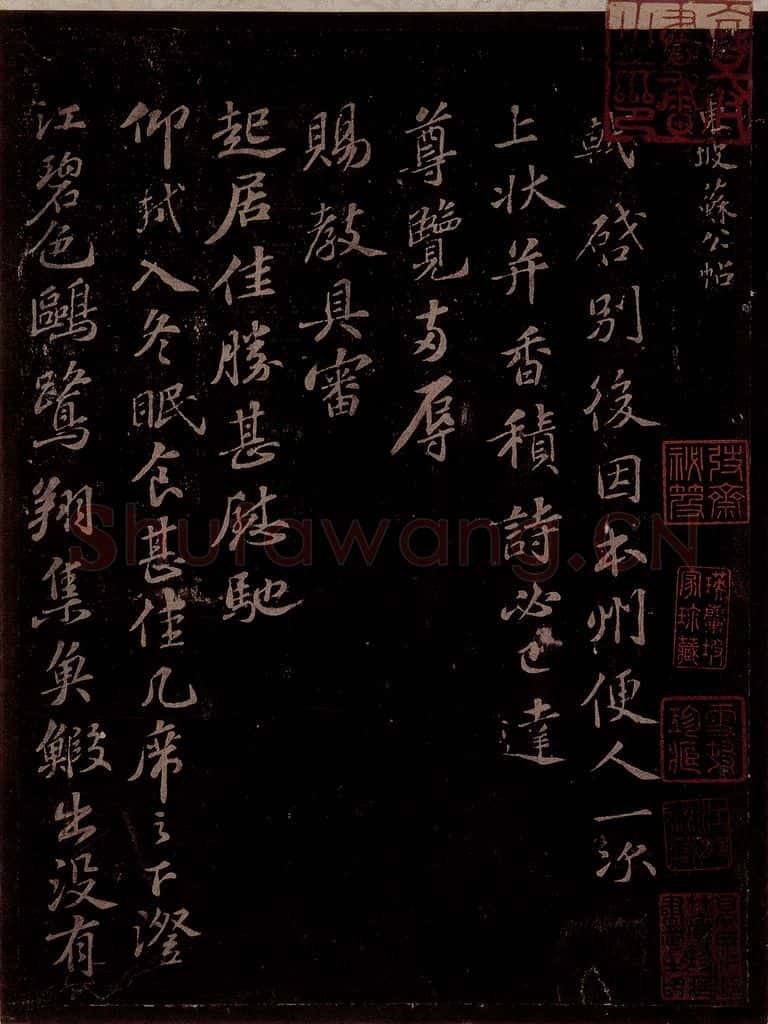 東坡蘇公帖
軾啓别後因本州便人一次
上狀并香積詩必已達
尊覽兩辱
賜教具審
起居佳勝甚慰馳
仰軾入冬眠食甚佳几席之下澄
江碧色鷗鷺翔集魚鰕出没有
Shufawang.CN